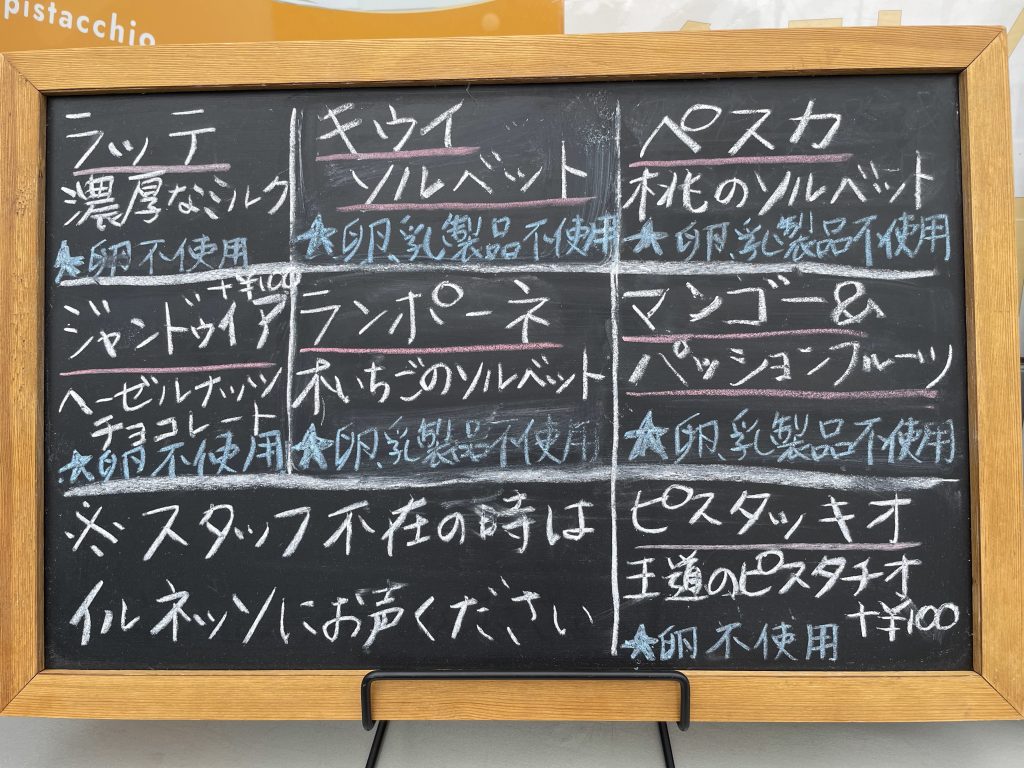 pistacchio
ラッテ
濃厚なミルク
★卵不使用
キウイ
ソルベット
★卵、乳製品不使用
ペスカ
桃のソルベット
★卵、乳製品不使用
+¥100
ジャンドゥイア
ヘーゼルナッツ
チョコレート
★卵不使用
ランポーネ
木いちごのソルベット
★卵、乳製品不使用
マンゴー&
パッションフルーツ
★卵、乳製品不使用
※スタッフ不在の時は
イルネッソにお声ください
ピスタッキオ
王道のピスタチオ
+¥100
★卵不使用